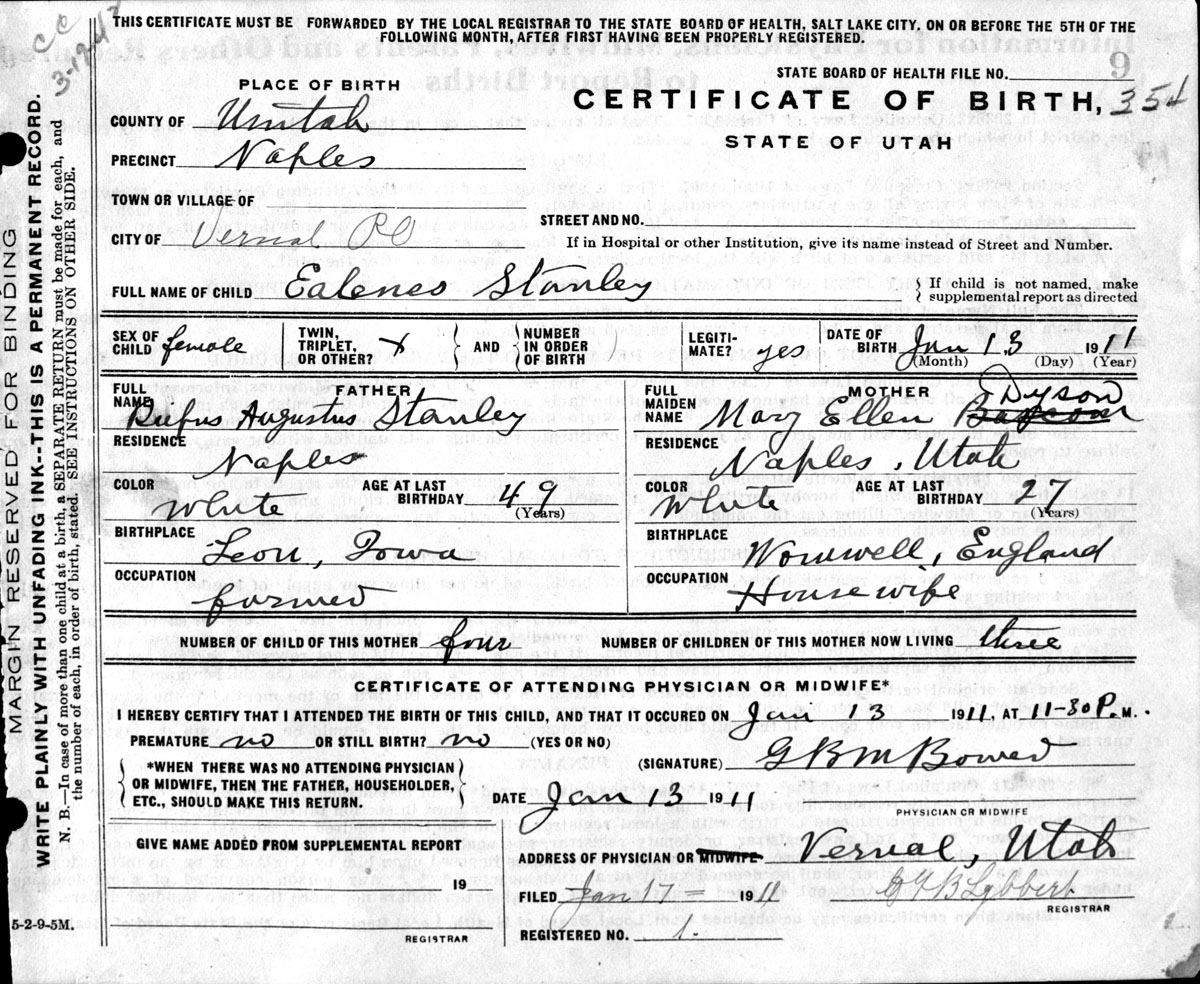 THIS CERTIFICATE MUST BE FORWARDED BY THE LOCAL REGISTRAR TO THE STATE BOARD OF HEALTH, SALT LAKE CITY, ON OR BEFORE THE 5TH OF THE
FOLLOWING MONTH, AFTER FIRST HAVING BEEN PROPERLY REGISTERED.
CC
MARGIN RESERVED FOR BINDING
WRITE PLAINLY WITH UNFADING INK--THIS IS A PERMANENT RECORD.
N. B.—In case of more than one child at a birth, a SEPARATE RETURN must be made for each, and
the number of each, in order of birth, stated. SEE INSTRUCTIONS ON OTHER SIDE.
STATE BOARD OF HEALTH FILE NO.
PLACE OF BIRTH
CERTIFICATE OF BIRTH, 354
STATE OF UTAH
COUNTY OF Uintah
PRECINCT Naples
TOWN OR VILLAGE OF
STREET AND NO.
CITY OF Vernal RO
If in Hospital or other Institution, give its name instead of Street and Number.
FULL NAME OF CHILD Ealenes Stanley
If child is not named, make
supplemental report as directed
SEX OF CHILD female TWIN, TRIPLET, OR OTHER? x AND NUMBER IN ORDER OF BIRTH LEGITI-MATE? yes DATE OF BIRTH Jan 13 1911
(Month) (Day) (Year)
FATHER
FULL NAME Rufus Augustus Stanley
RESIDENCE
Naples
COLOR White AGE AT LAST BIRTHDAY 49 (Years)
BIRTHPLACE
Leon, Iowa
OCCUPATION
farmer
MOTHER
FULL MAIDEN NAME Mary Ellen Dyson
RESIDENCE
Naples, Utah
COLOR White AGE AT LAST BIRTHDAY 27 (Years)
BIRTHPLACE
Womwell, England
OCCUPATION
Housewife
NUMBER OF CHILD OF THIS MOTHER four NUMBER OF CHILDREN OF THIS MOTHER NOW LIVING three
CERTIFICATE OF ATTENDING PHYSICIAN OR MIDWIFE*
I HEREBY CERTIFY THAT I ATTENDED THE BIRTH OF THIS CHILD, AND THAT IT OCCURED ON Jan 13 1911, AT 11-30 P. M.
PREMATURE no OR STILL BIRTH? no (YES OR NO)
(SIGNATURE) G B M Bower
*WHEN THERE WAS NO ATTENDING PHYSICIAN
OR MIDWIFE, THEN THE FATHER, HOUSEHOLDER,
ETC., SHOULD MAKE THIS RETURN.
DATE Jan 13 1911
PHYSICIAN OR MIDWIFE
GIVE NAME ADDED FROM SUPPLEMENTAL REPORT
19
REGISTRAR
ADDRESS OF PHYSICIAN OR MIDWIFE Vernal, Utah
FILED Jan 17 - 1911
Lybbert
REGISTRAR
REGISTERED NO. 1.
5-2-9-5M.